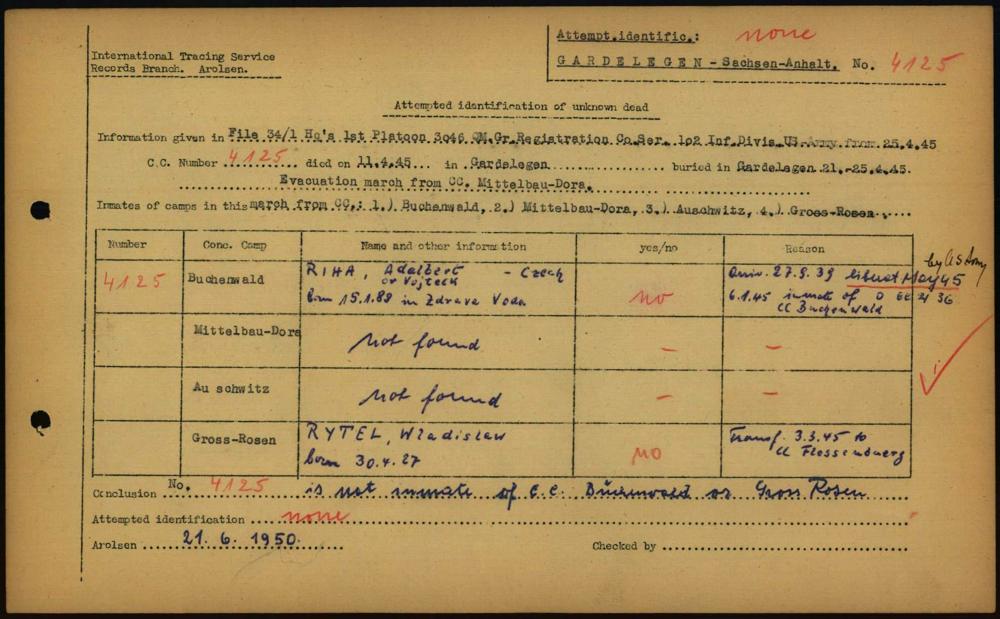 International Tracing Service
Records Branch. Arolsen.
Attempt.identific.: none
GARDELEGEN - Sachsen-Anhalt. No. 4125
Attempted identification of unknown dead
Information given in File 34/1 Hq's 1st Platoon 3046 QM.Gr.Registration Co.Ser. 102 Inf.Divis.US-Army from 25.4.45
C.C. Number 4125 died on 11.4.45 in Gardelegen buried in Gardelegen 21.-25.4.45.
Evacuation march from CC. Mittelbau-Dora.
Inmates of camps in this march from CC.: 1.) Buchenwald, 2.) Mittelbau-Dora, 3.) Auschwitz, 4.) Gross-Rosen
Number Conc. Camp Name and other information yes/no Reason
4125 Buchenwald RIHA, Adalbert - Czech
or Vojteck
born 15.1.88 in Zdrava Voda no
27.9.39 liberat May 45 by US Army
6.1.45 inmate of
CC Buchenwald
Mittelbau-Dora not found - -
Auschwitz not found - -
Gross-Rosen RYTEL, Wladislaw
born 30.4.27 no Transf. 3.3.45 to
CC Flossenbuerg
Conclusion No. 4125 is not inmate of C.C. or Gross Rosen
Attempted identification none
Arolsen 21. 6. 1950. Checked by